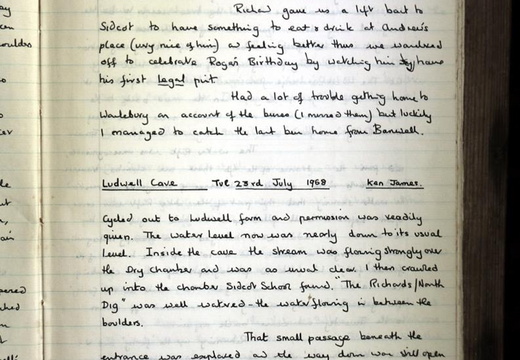 Richard gave us a lift back to
Sidcot to have something to eat & drink at Andrew's
place (very nice of him) as feeling better thus we wandered
off to celebrate Rogers Birthday by watching him have
his first legal pint
Had a lot of trouble getting home to
on account of the buses (I missed them) but luckily
I managed to catch the last bus home from Banwell.
Ludwell Cave Tue 23rd. July 1968 Ken James.
Cycled out to Ludwell farm and permission was readily
given. The water level now was nearly down to its usual
level. Inside the cave the stream was flowing strongly over
the Dry chamber and was as usual clear. I then crawled
up into the chamber Sidcot School found. "The Richards/North
Dig" was well watered - the water flowing in between the
boulders.
That small passage beneath the
entrance was explored and the way down was still open